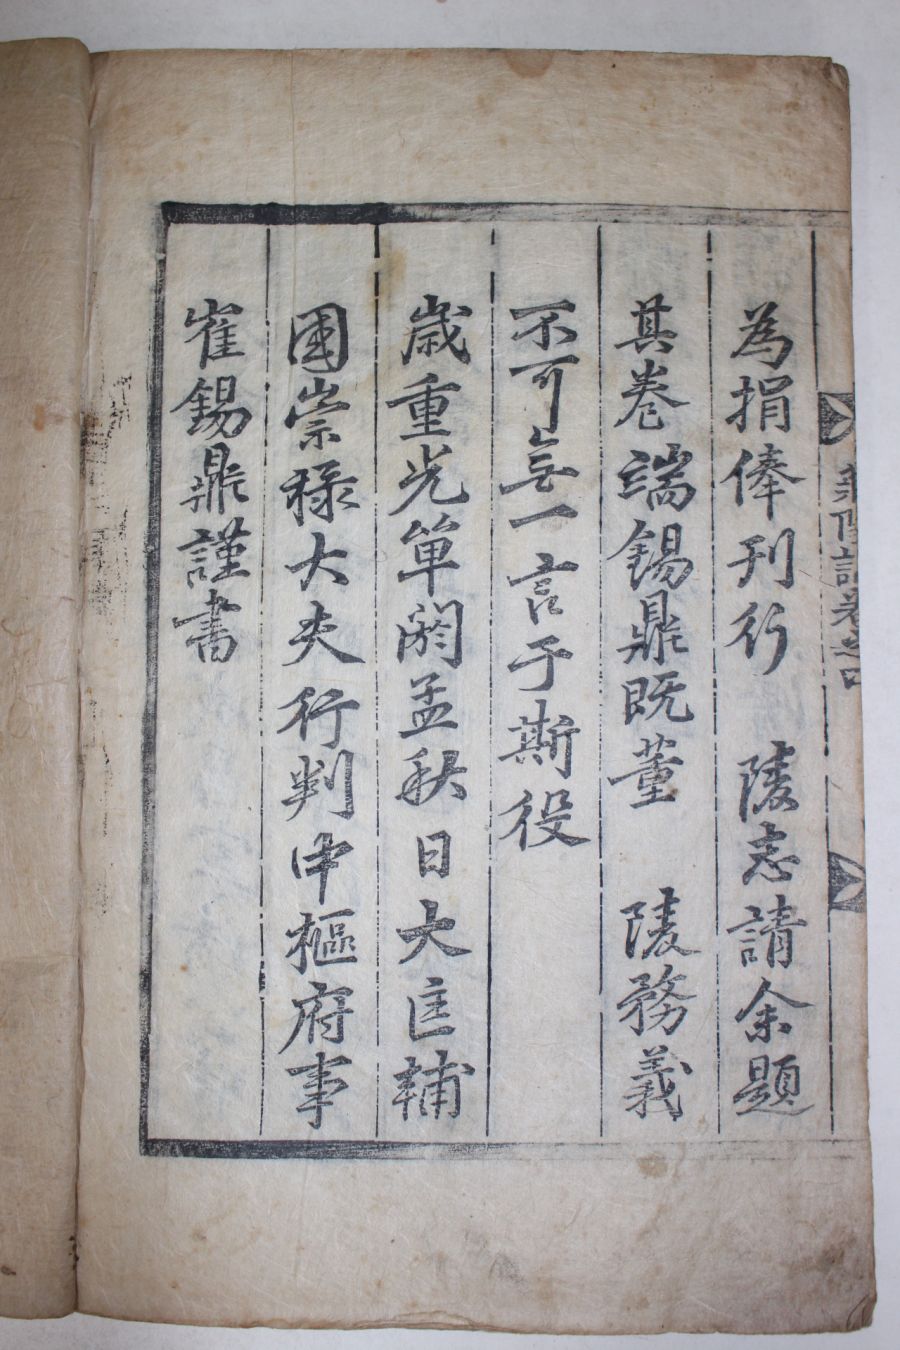 為捐俸刊行 陵志請余題
其卷端錫鼎既董 陵務義
不可無一言于斯役
歲重光單閼孟秋日大匡輔
國崇祿大夫行判中樞府事
崔錫鼎謹書